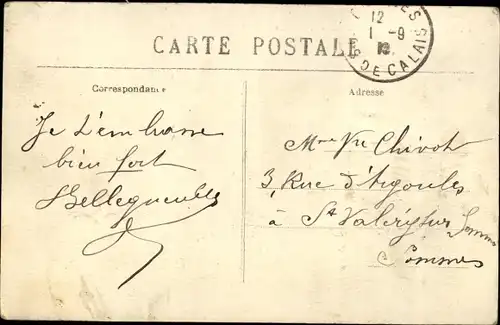 CARTE POSTALE
12
1 - 9
DE CALAIS
Correspondance
Adresse
Je t'embrasse
bien fort
Bellegueulle
Mme Vve Chivot
3, Rue d'Argoules
à St Valéry sur Somme
Somme